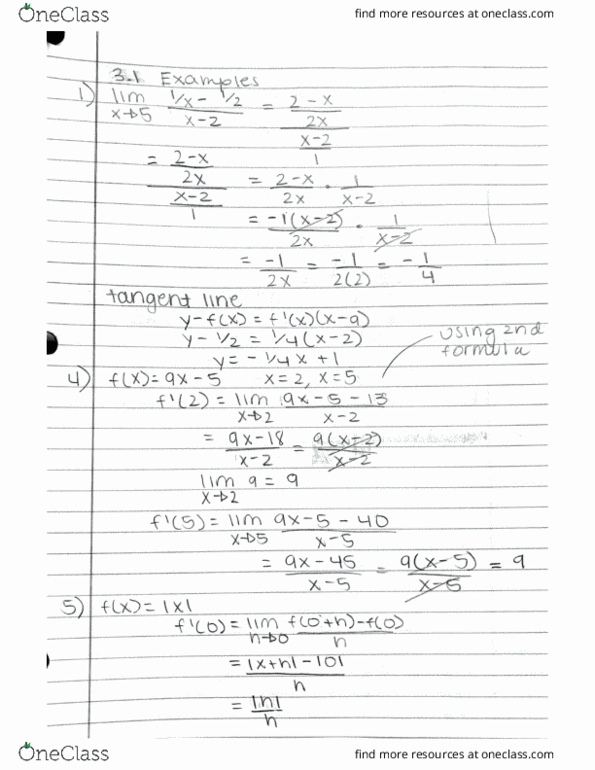 OneClass find more resources at oneclass.com
3.1 Examples
1) lim x→5 (1/x - 1/2)/(x-2) = ((2-x)/2x)/((x-2)/1)
= ((2-x)/2x)/((x-2)/1) = (2-x)/2x · 1/(x-2)
= -1(x-2)/2x · 1/(x-2)
= -1/2x = -1/2(2) = -1/4
tangent line
y-f(x) = f'(x)(x-a)
y - 1/2 = 1/4(x-2)
y = - 1/4 x + 1
using 2nd
formula
4) f(x) = 9x - 5 x = 2, x = 5
f'(2) = lim x→2 (9x - 5 - 13)/(x-2)
= (9x-18)/(x-2) = 9(x-2)/(x-2)
lim x→2 9 = 9
f'(5) = lim x→5 (9x - 5 - 40)/(x-5)
= (9x - 45)/(x-5) = 9(x-5)/(x-5) = 9
5) f(x) = |x|
f'(0) = lim h→0 (f(0+h)-f(0))/h
= (|x+h| - |0|)/h
= |h|/h
OneClass find more resources at oneclass.com